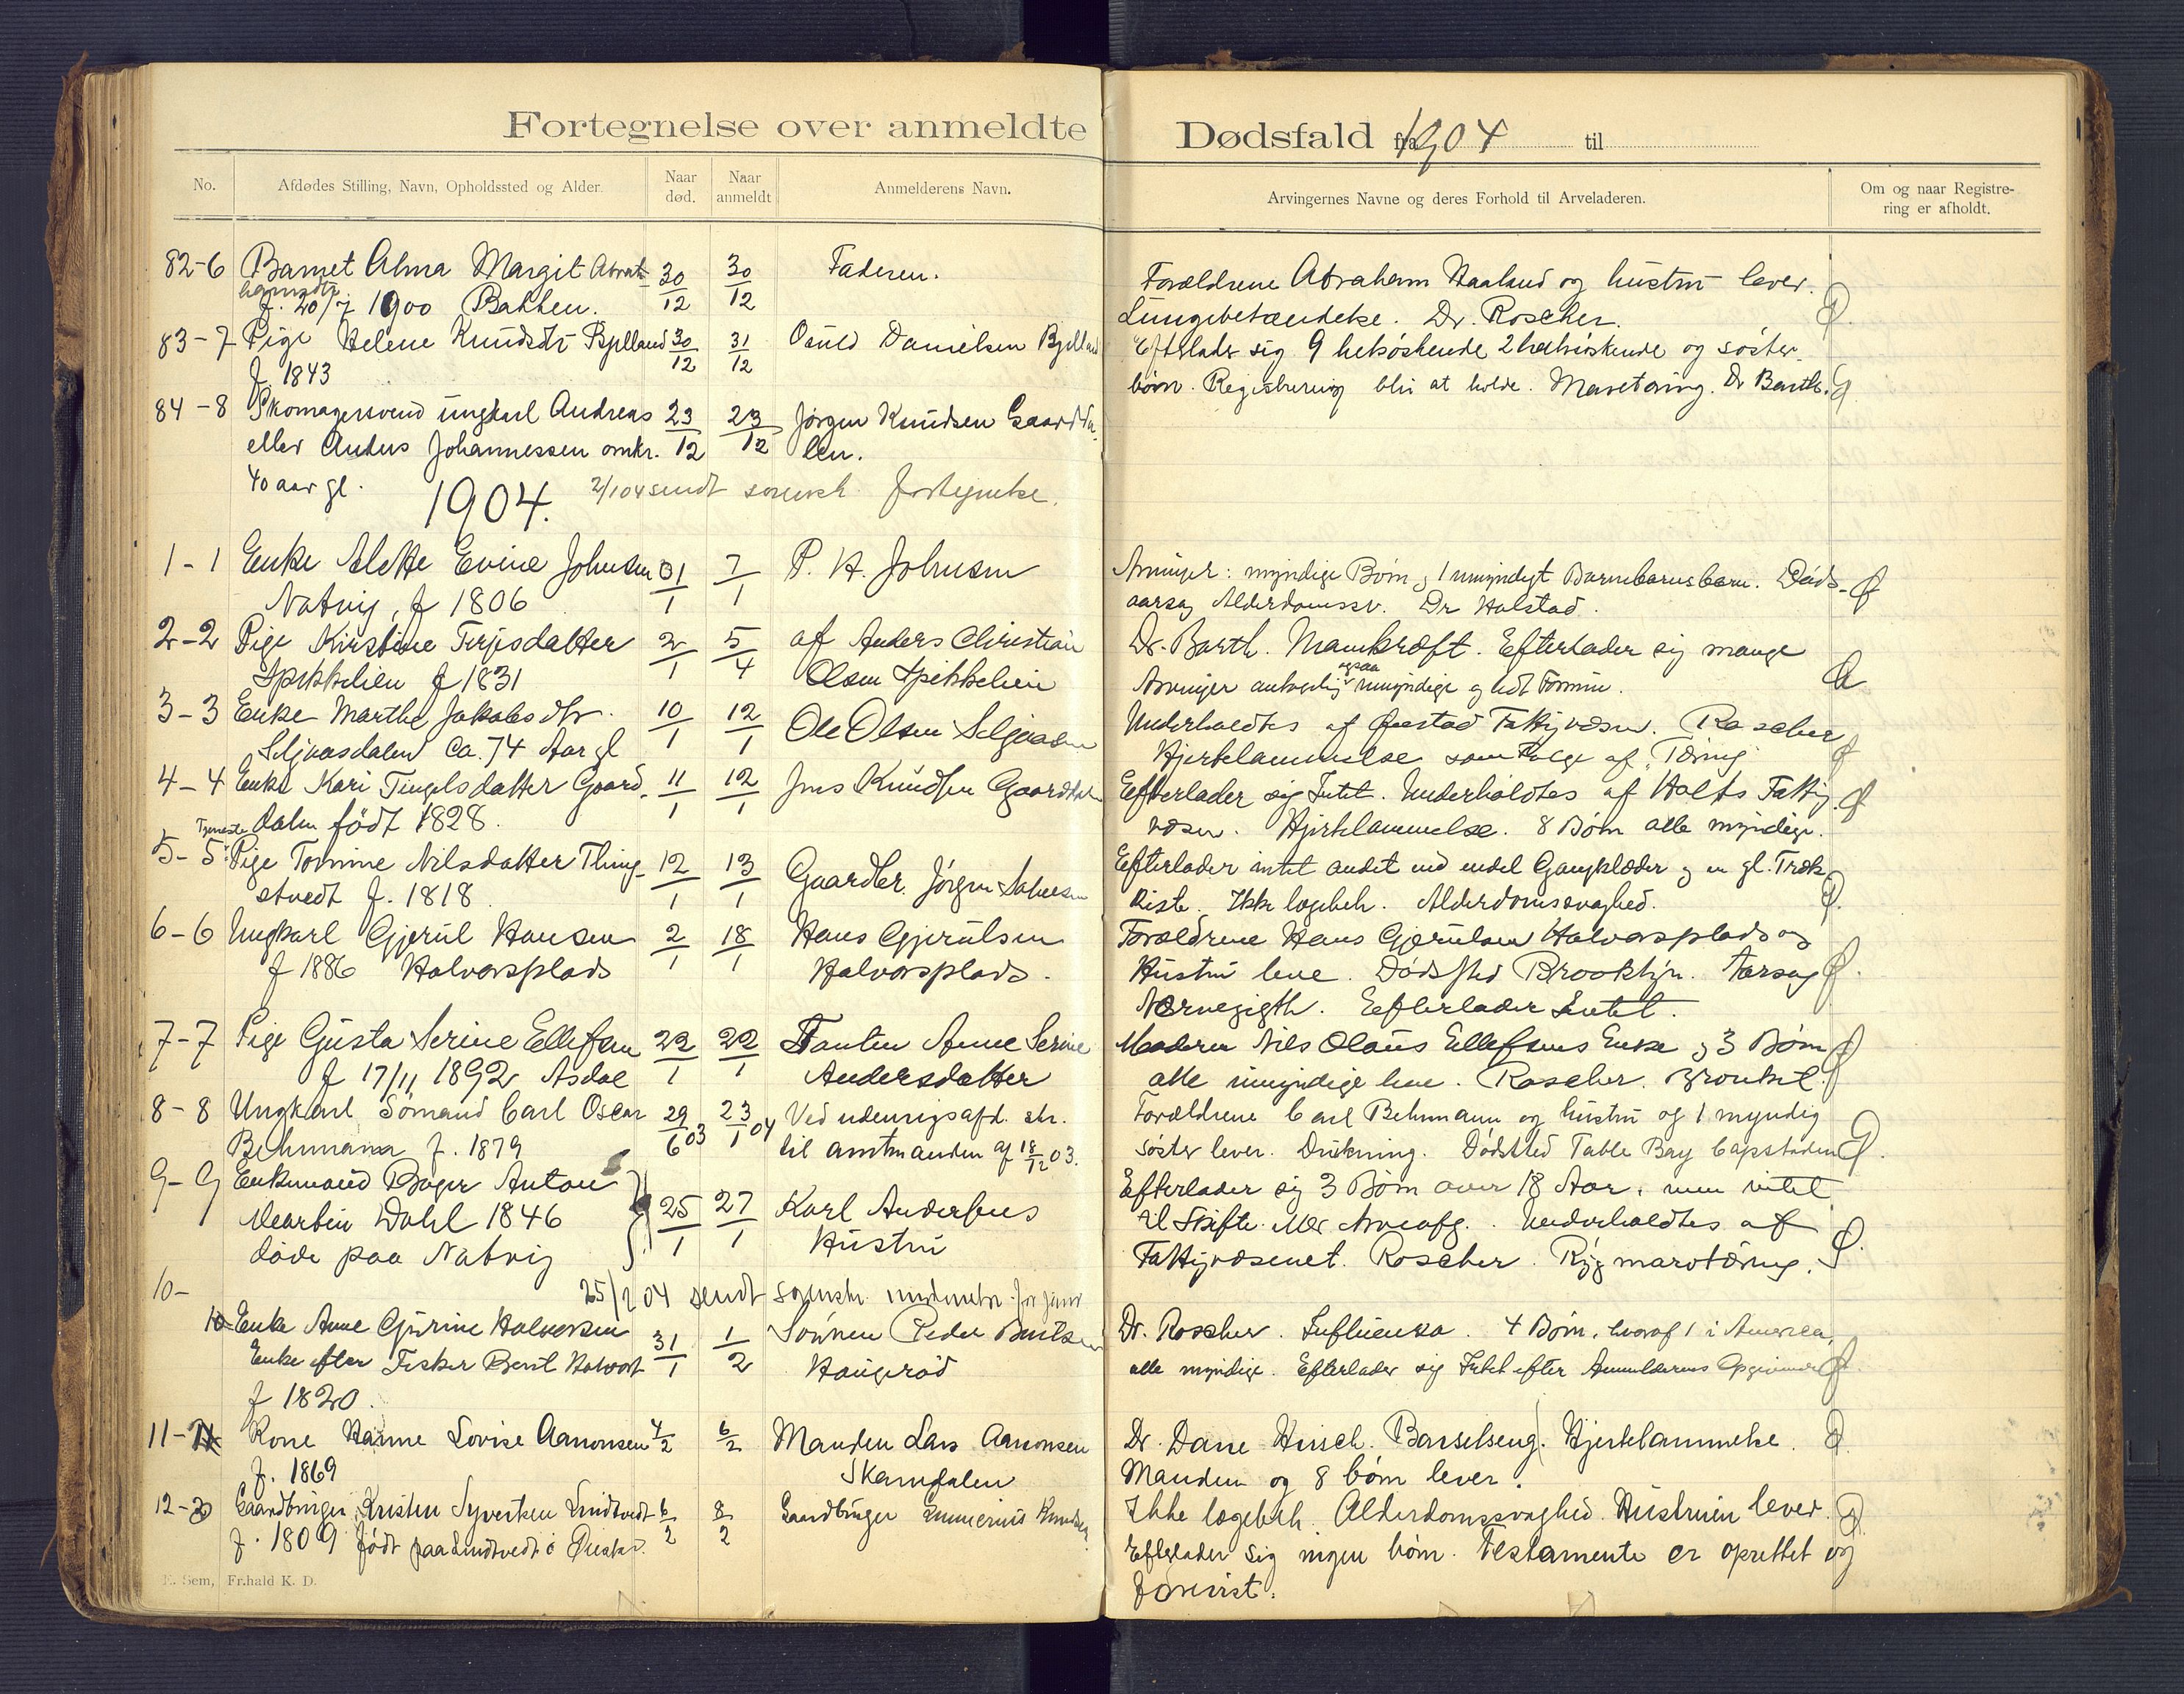 Fortegnelse over anmeldte
No. Afdødes Stilling, Navn, Opholdssted og Alder. Naar død. Naar anmeldt Anmelderens Navn.
82-6 Barnet Alma Margit Abra- 30/12 30/12 Faderen.
hamsdtr.
f. 20/7 1900 Bakken.
83-7 Pige Helene Knudsdtr Bjelland 30/12 31/12 Osuld Danielsen Bjelland
f. 1843
84-8 Skomagersvend ungkarl Andreas 23/12 23/12 Jørgen Knudsen Gaardda-
eller Anders Johannessen omkr. len.
40 aar gl.
1904. 2/1 04 sendt sorensk. fortegnelse.
1-1 Enke Alette Evine Johnsen 31/1 7/1 P. A. Johnsen
Natvig, f 1806
2-2 Pige Kirstine Terjesdatter 2/1 5/4 af Anders Christian
Spikkelien f 1831 Olsen Spikkelien
3-3 Enke Marthe Jakobsdtr. 10/1 12/1 Ole Olsen Seljaasen
Seljaasdalen Ca. 74 Aar gl
4-4 Enke Kari Tengelsdatter Gaard- 11/1 12/1 Jens Knudsen Gaarddalen
dalen født 1828.
5-5 Tjeneste Pige Tomine Nilsdatter Thing- 12/1 13/1 Gaardbr. Jörgen
stvedt f. 1818
6-6 Ungkarl Gjerul Hansen 2/1 18/1 Hans Gjerulsen
f 1886 Halvorsplads Halvorsplads.
7-7 Pige Gusta Serine Ellefsen 22/1 22/1 Tanten Anne Serine
f 17/11 1892 Asdal Andersdatter
8-8 Ungkarl Sömand Carl Oscar 29/6 03 23/1 04 Ved udenrigsafd. skr.
Behrmann f. 1879 til amtmanden af 18/12 03.
9-9 Enkemand Bager Anton
Martin Dahl 1846 25/1 27/1 Karl Andersens
døde paa Natvig Hustru
10- 25/1 04 sendt sorenskr. for januar
10 Enke Anne Gurine Halvorsen 31/1 1/2 Sønnen Peder Bentsen
Enke efter Fisker Bent Halvors. Haugerød
f 1820.
11-11 Kone Hanne Lovise Aanonsen 4/2 6/2 Manden Lars Aanonsen
f. 1869 Skarvdalen
12- Gaardbruger Kristen Syvertsen Lindtvedt 6/2 8/2 Gaardbruger Knudsen
f. 1809 født paa Lindtvedt i Øiestad.
E. Sem, Fr.hald K. D.
Dødsfald fra 1904 til
Arvingernes Navne og deres Forhold til Arveladeren. Om og naar Registre-
ring er afholdt.
Forældrene Abraham Haaland og hustru lever.
Lungebetændelse. Dr. Roscher.
Efterlader sig 9 helsøskende 2 halvsøskende og søster-
børn. Registrering blir at holde. Mavetæring. Dr Barth.
Arvinger: myndige Børn og 1 umyndigt Barnebarnsbarn. Døds-
aarsag Alderdomssv. Dr Halstad.
Dr. Barth. Mavekræft. Efterlader sig mange
Arvinger antagelig ogsaa umyndige og lidt Formue.
Underholdtes af Øiestad Fattigvæsen. Roscher
Hjertelammelse som Følge af Tæring
Efterlader sig Intet. Underholdtes af Holts Fattig-
væsen. Hjertelammelse. 8 Børn alle myndige.
Efterlader intet andet end endel Gangklæder og en gl. Træk-
kiste. Ikke lægebeh. Alderdomssvaghed.
Forældrene Hans Gjerulsen Halvorsplads og
Hustru leve. Dødssted Brooklyn. Aarsag
Nervegigth. Efterlader Intet.
Moderen Nils Olaus Ellefsens Enke og 3 Børn
alle umyndige leve. Roscher. Bronkit.
Forældrene Carl Behrmann og hustru og 1 myndig
søster lever. Drukning. Dødssted Table Bay Capstaden
Efterlader sig 3 Børn over 18 Aar, men intet
til Skifte eller Arveafg. Underholdtes af
Fattigvæsenet. Roscher. Rygmarvtæring.
Dr. Roscher. Influensa. 4 Børn, hvoraf 1 i Amerika,
alle myndige. Efterlader sig Intet efter Anmelderens Opgivende
Dr. Dane Hirsch. Barselseng. Hjertelammelse.
Manden og 8 børn lever.
Ikke lægebeh. Alderdomssvaghed. Hustruen lever.
Efterlader sig ingen børn. Testamente er oprettet og
forevist.